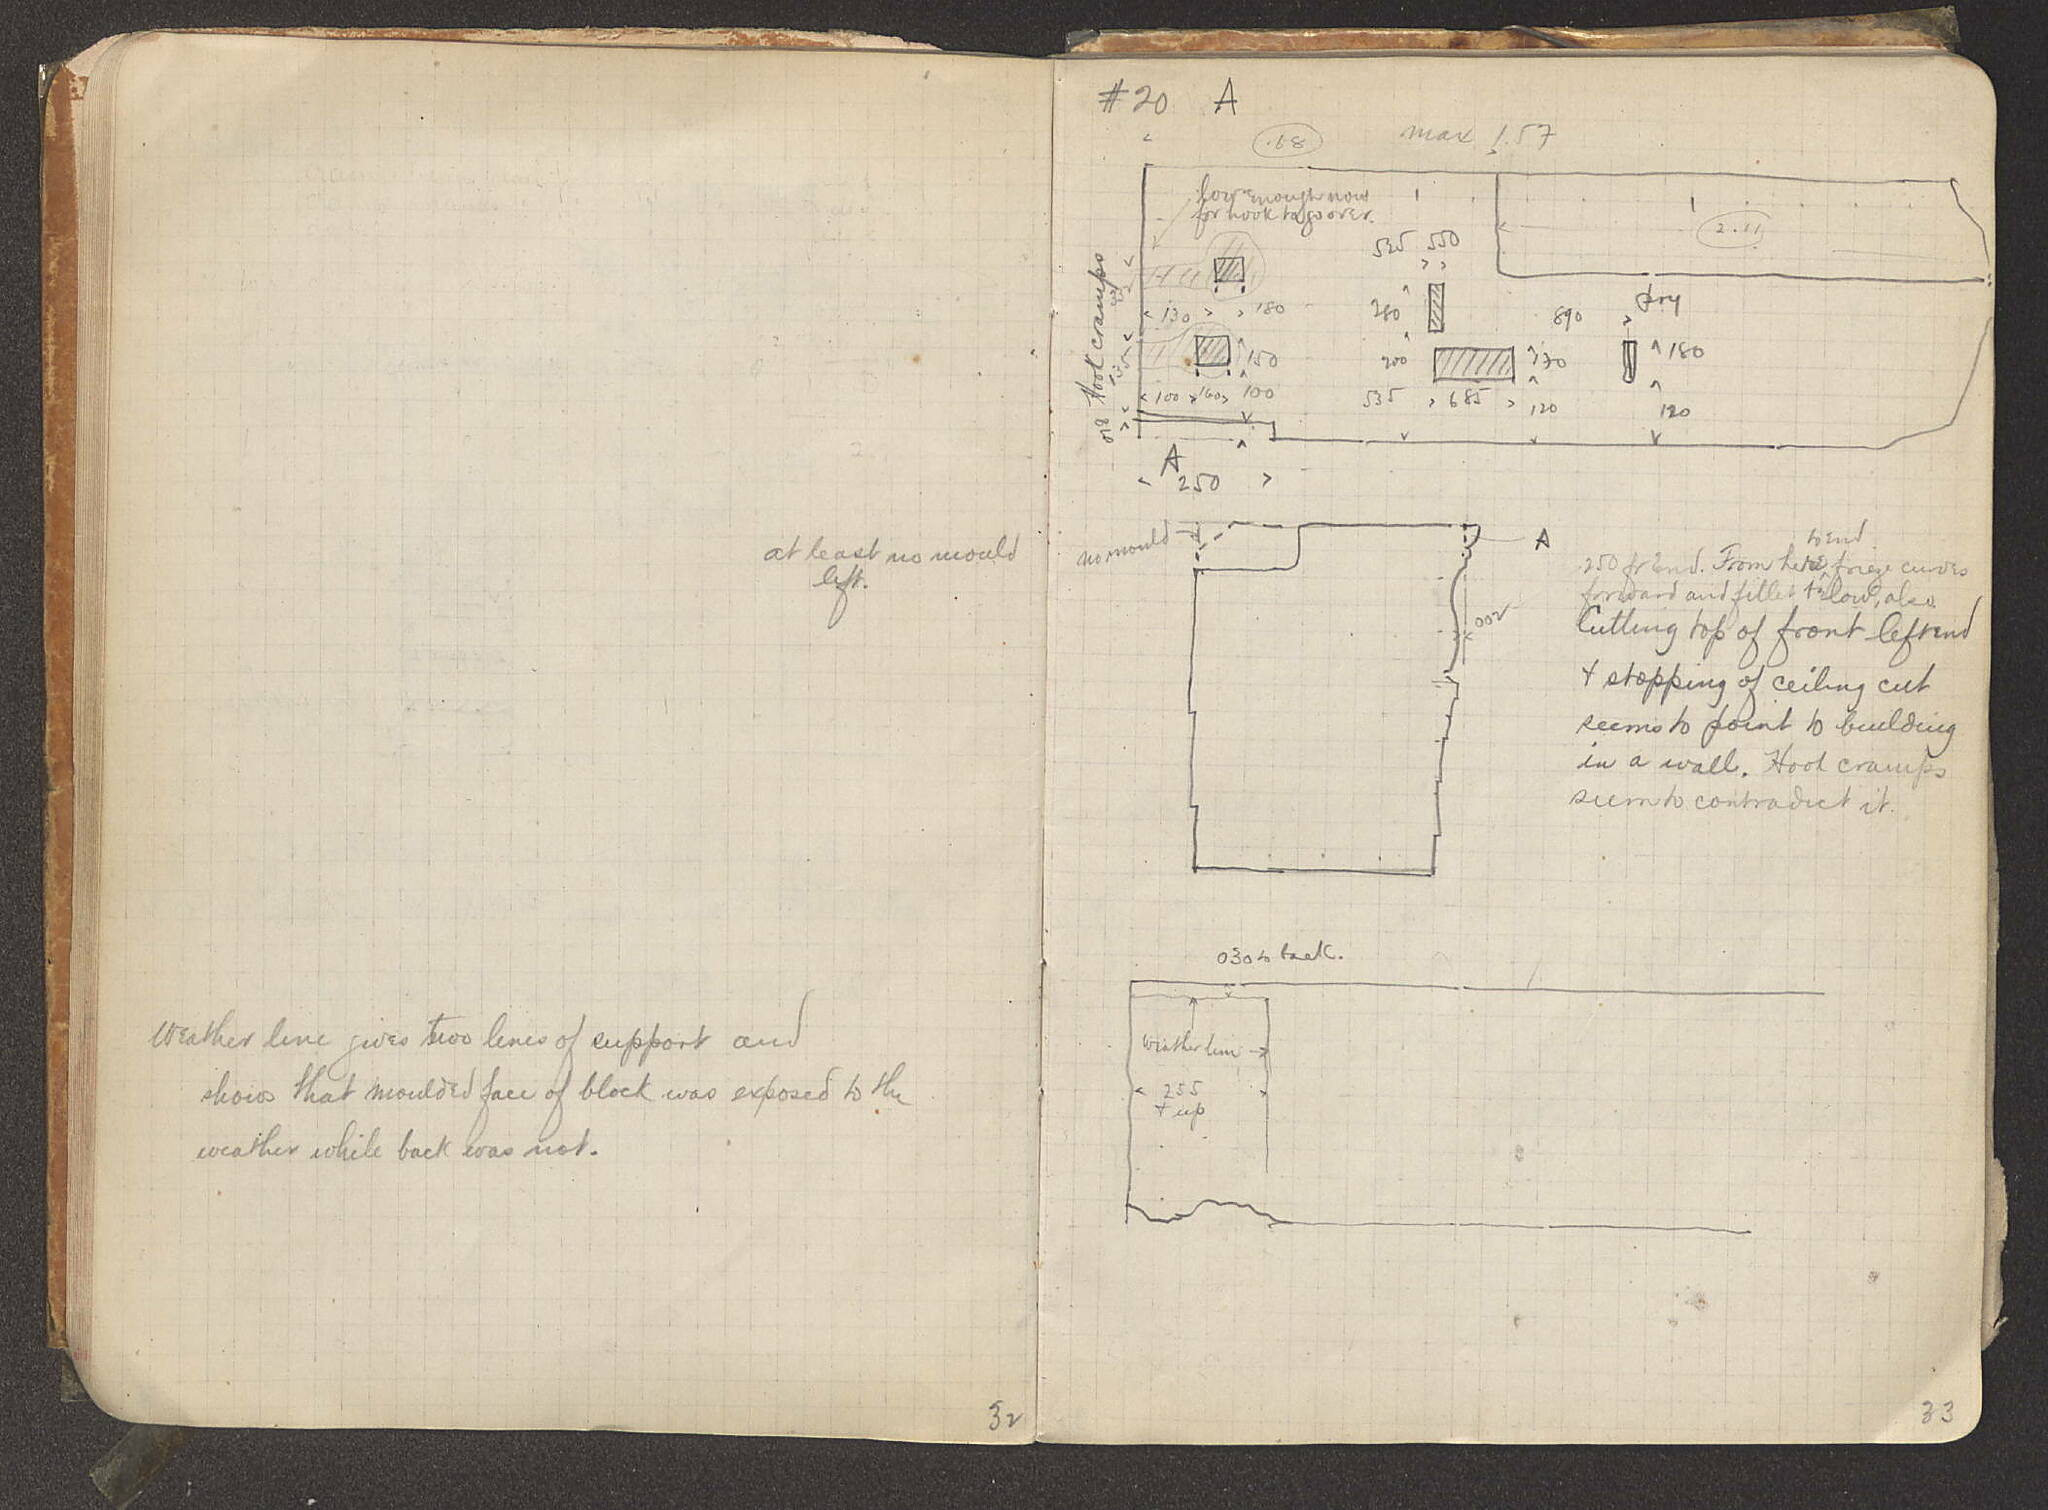 at least no mould
left.
Weather line gives two lines of support and
shows that moulded face of block was exposed to the
weather while back was not.
32
#20 A
.68
max 1.57
low enough now
for hook to go over.
2.11
535 550
old Hook cramps
130 180
280
890
dry
150
200
170
180
100 160 100
535 685 120
120
A
250
no mould
A
to end
250 fr End. From here frieze curves
forward and fillet below, also
Cutting top of front left end
+ stopping of ceiling cut
seems to point to building
in a wall. Hook cramps
seem to contradict it.
002
030 to back.
weather line
255
+ up
33